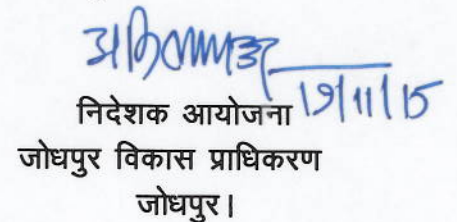 19/11/15
निदेशक आयोजना
जोधपुर विकास प्राधिकरण
जोधपुर।